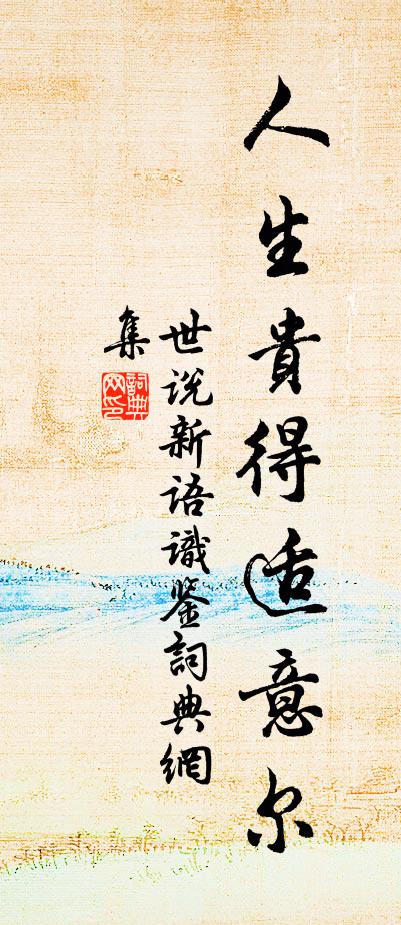 人生貴得适意尔
世说新语識鉴詞典網
集
詞典
网印